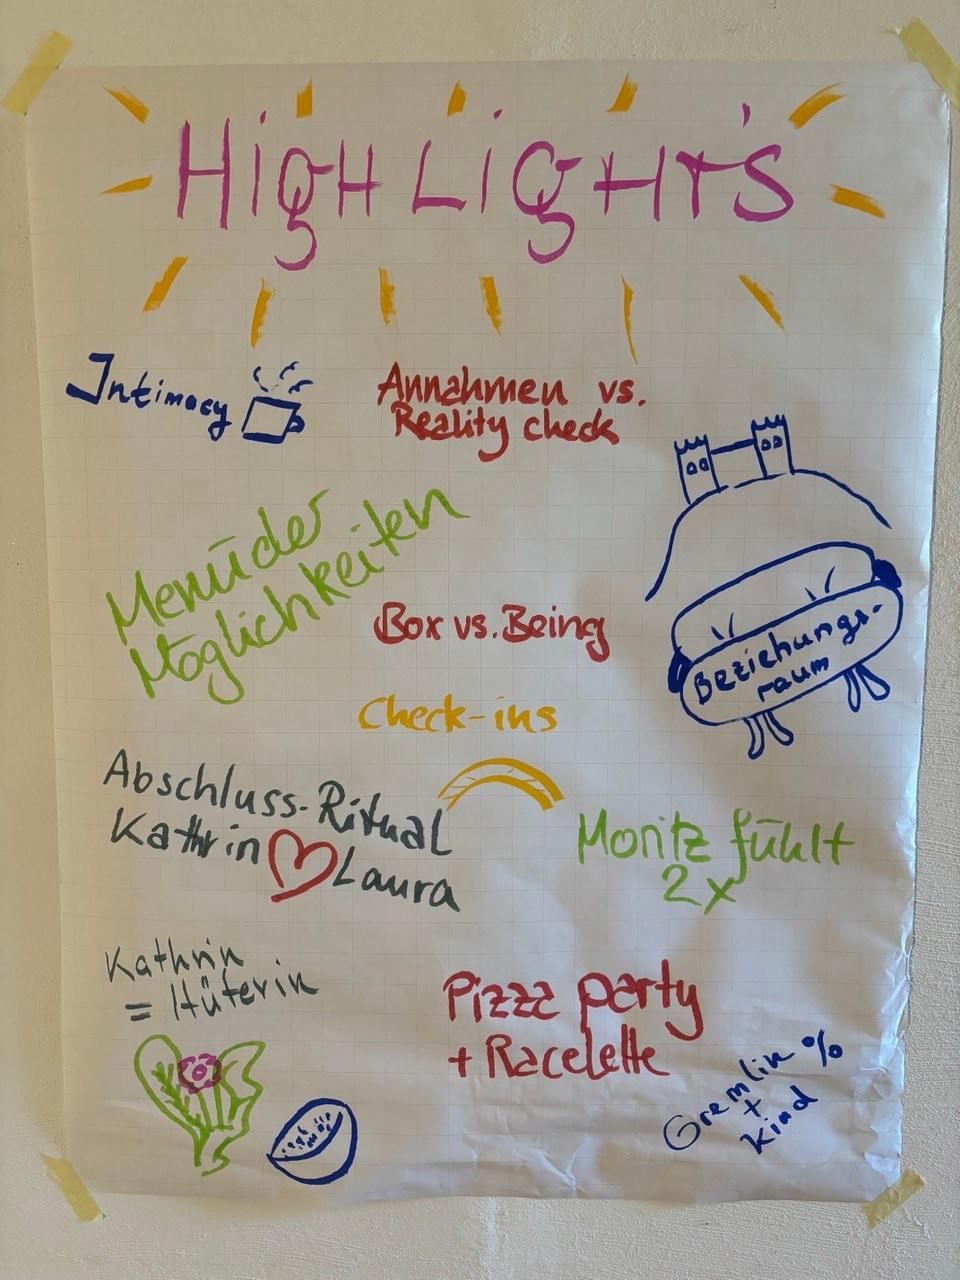 HigH LigHt's
Intimacy
Annahmen vs.
Reality check
Menü der
Möglichkeiten
Box vs. Being
Beziehungs-
raum
Check-ins
Abschluss-Ritual
Kathrin ♡ Laura
Moritz fühlt
2x
Kathrin
= Hüterin
Pizza party
+ Racelette
Gremlin %
+
Kind